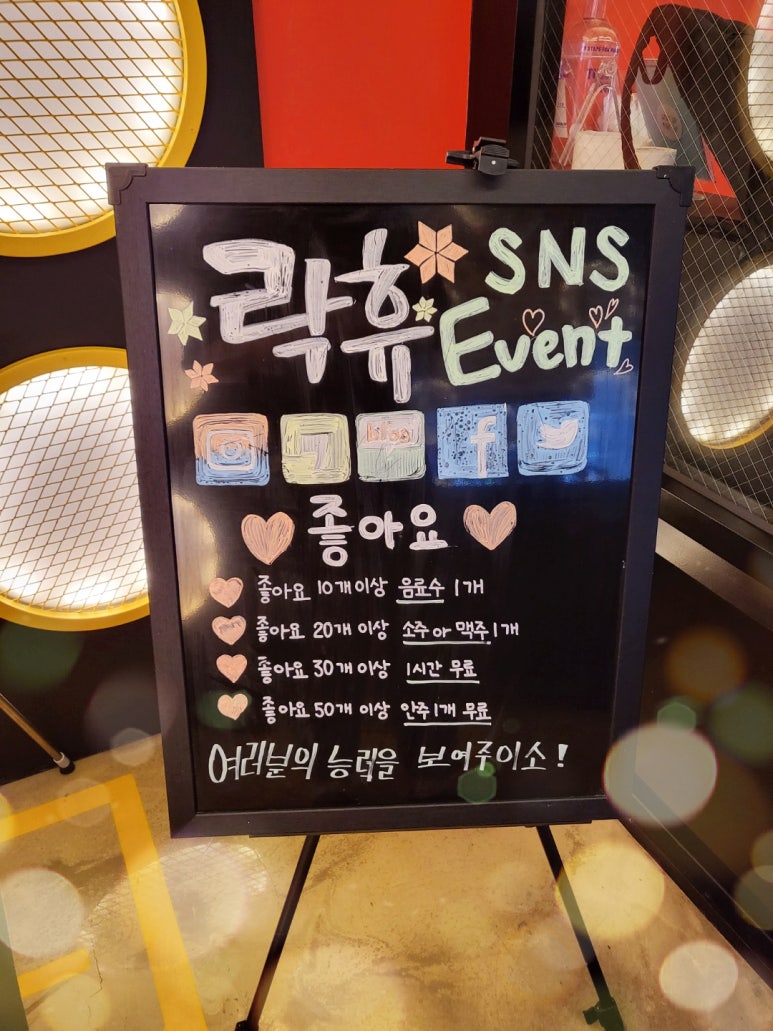 락휴 SNS
Event
blog f
좋아요
좋아요 10개 이상 음료수 1개
좋아요 20개 이상 소주 or 맥주 1개
좋아요 30개 이상 1시간 무료
좋아요 50개 이상 안주 1개 무료
여러분의 능력을 보여주이소!